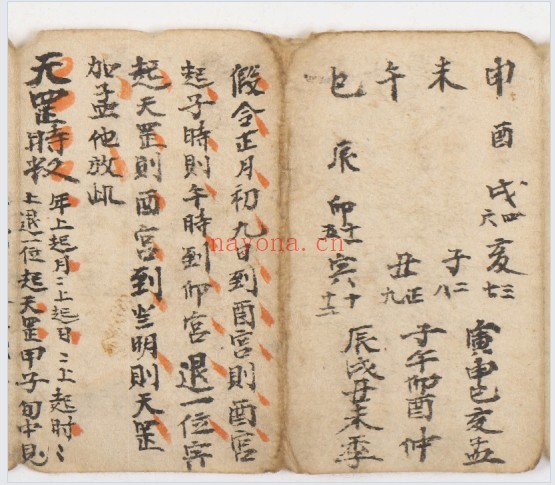 申 酉 戌 四六 亥 三七
未 子 二八
午 丑 正九
巳 辰 卯 十一五 寅 十十二
寅申巳亥孟
子午卯酉仲
辰戌丑未季
假令正月初九日到酉宫則酉宫
起子時則午時到卯宫退一位寅
起天罡則酉宫到明則天罡
加孟他放此
天罡時
年上起月二上起日二上起时二
上退一位起天罡甲子旬中見
nayona.cn